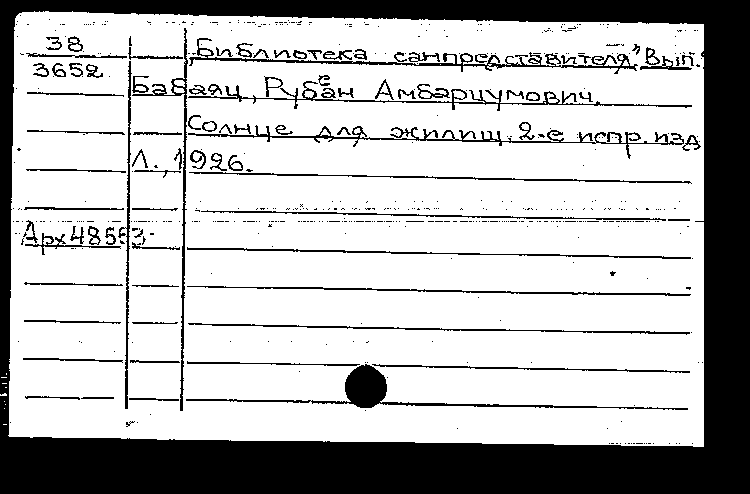 38
„Библиотека санпредставителя“, Вып.
3652
Бабаяц, Рубен Амбарцумович.
Солнце для жилищ. 2-е испр. изд
Л., 1926.
Арх48553